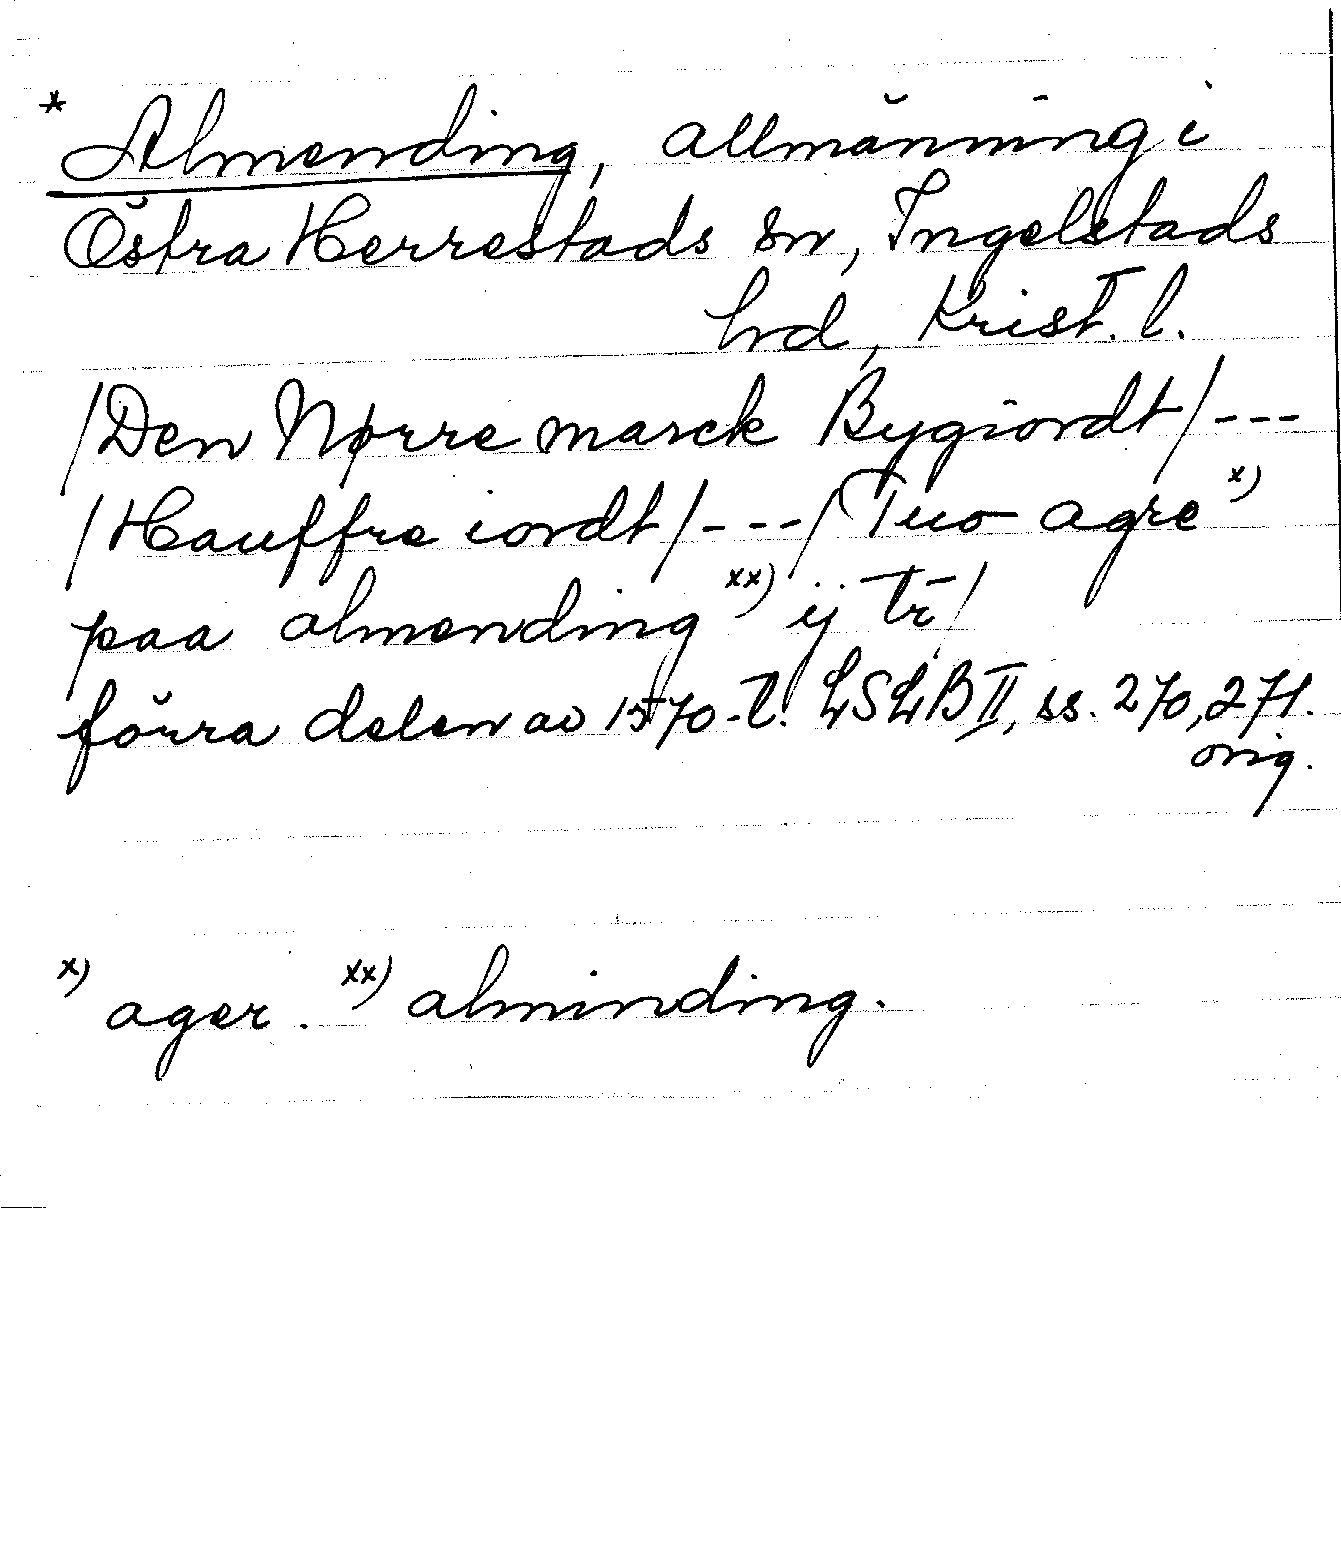 * Almending, allmänning i
Östra Herrestads sn, Ingelstads
hd, Krist. l.
/Den Nørre marck Bygiordt/---
/Hauffre iordt/---/Tuo agre x)
paa almending xx) ij tr/
förra delen av 1570-t. LSLB II, ss. 270, 271.
orig.
x) ager. xx) alminding.